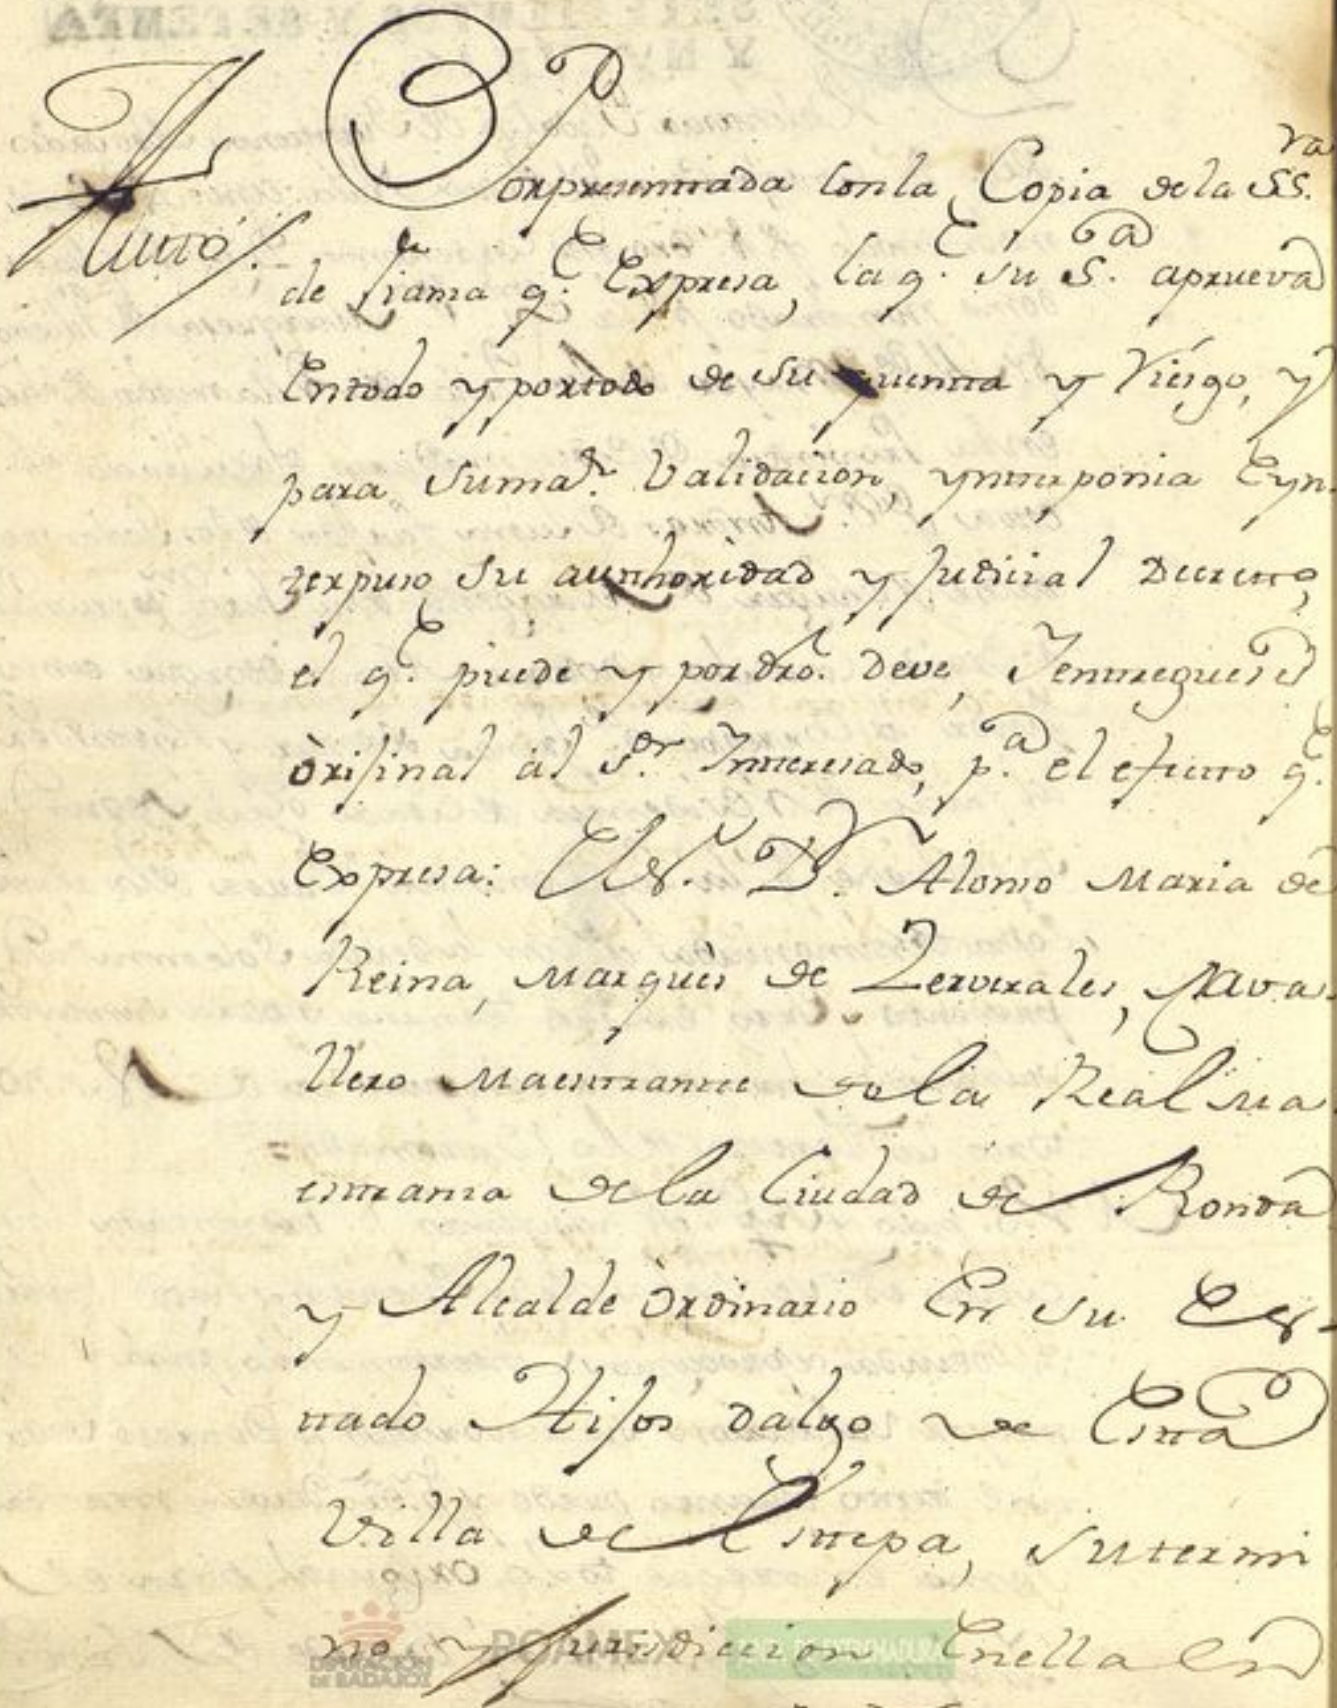 Auto
Porpresentada conla Copia dela SS.ra
de fianza q.e Expresa, la q.e su S.a aprueva
Entodo y portodo de su quenta y Riesgo, y
para suma.r validacion ynterponia Eyn
terpuso su authoridad y Judicial Decreto,
el q.e puede y por dro. deve, Yentreguese
òrijinal àl s.or Interesado, p.a el efecto q.e
Expresa: El s.r D.n Alonso Maria de
Reina, Marquès de Zerverales, Cava
llero Maestrante de la Real Ma
estranza de la Ciudad de Ronda
y Alcalde òrdinario En su Es-
tado Hijos dalgo de Esta
Villa de Estepa, su termi
no y Jurisdiccion Enella en
DIPUTACIÓN
DE BADAJOZ